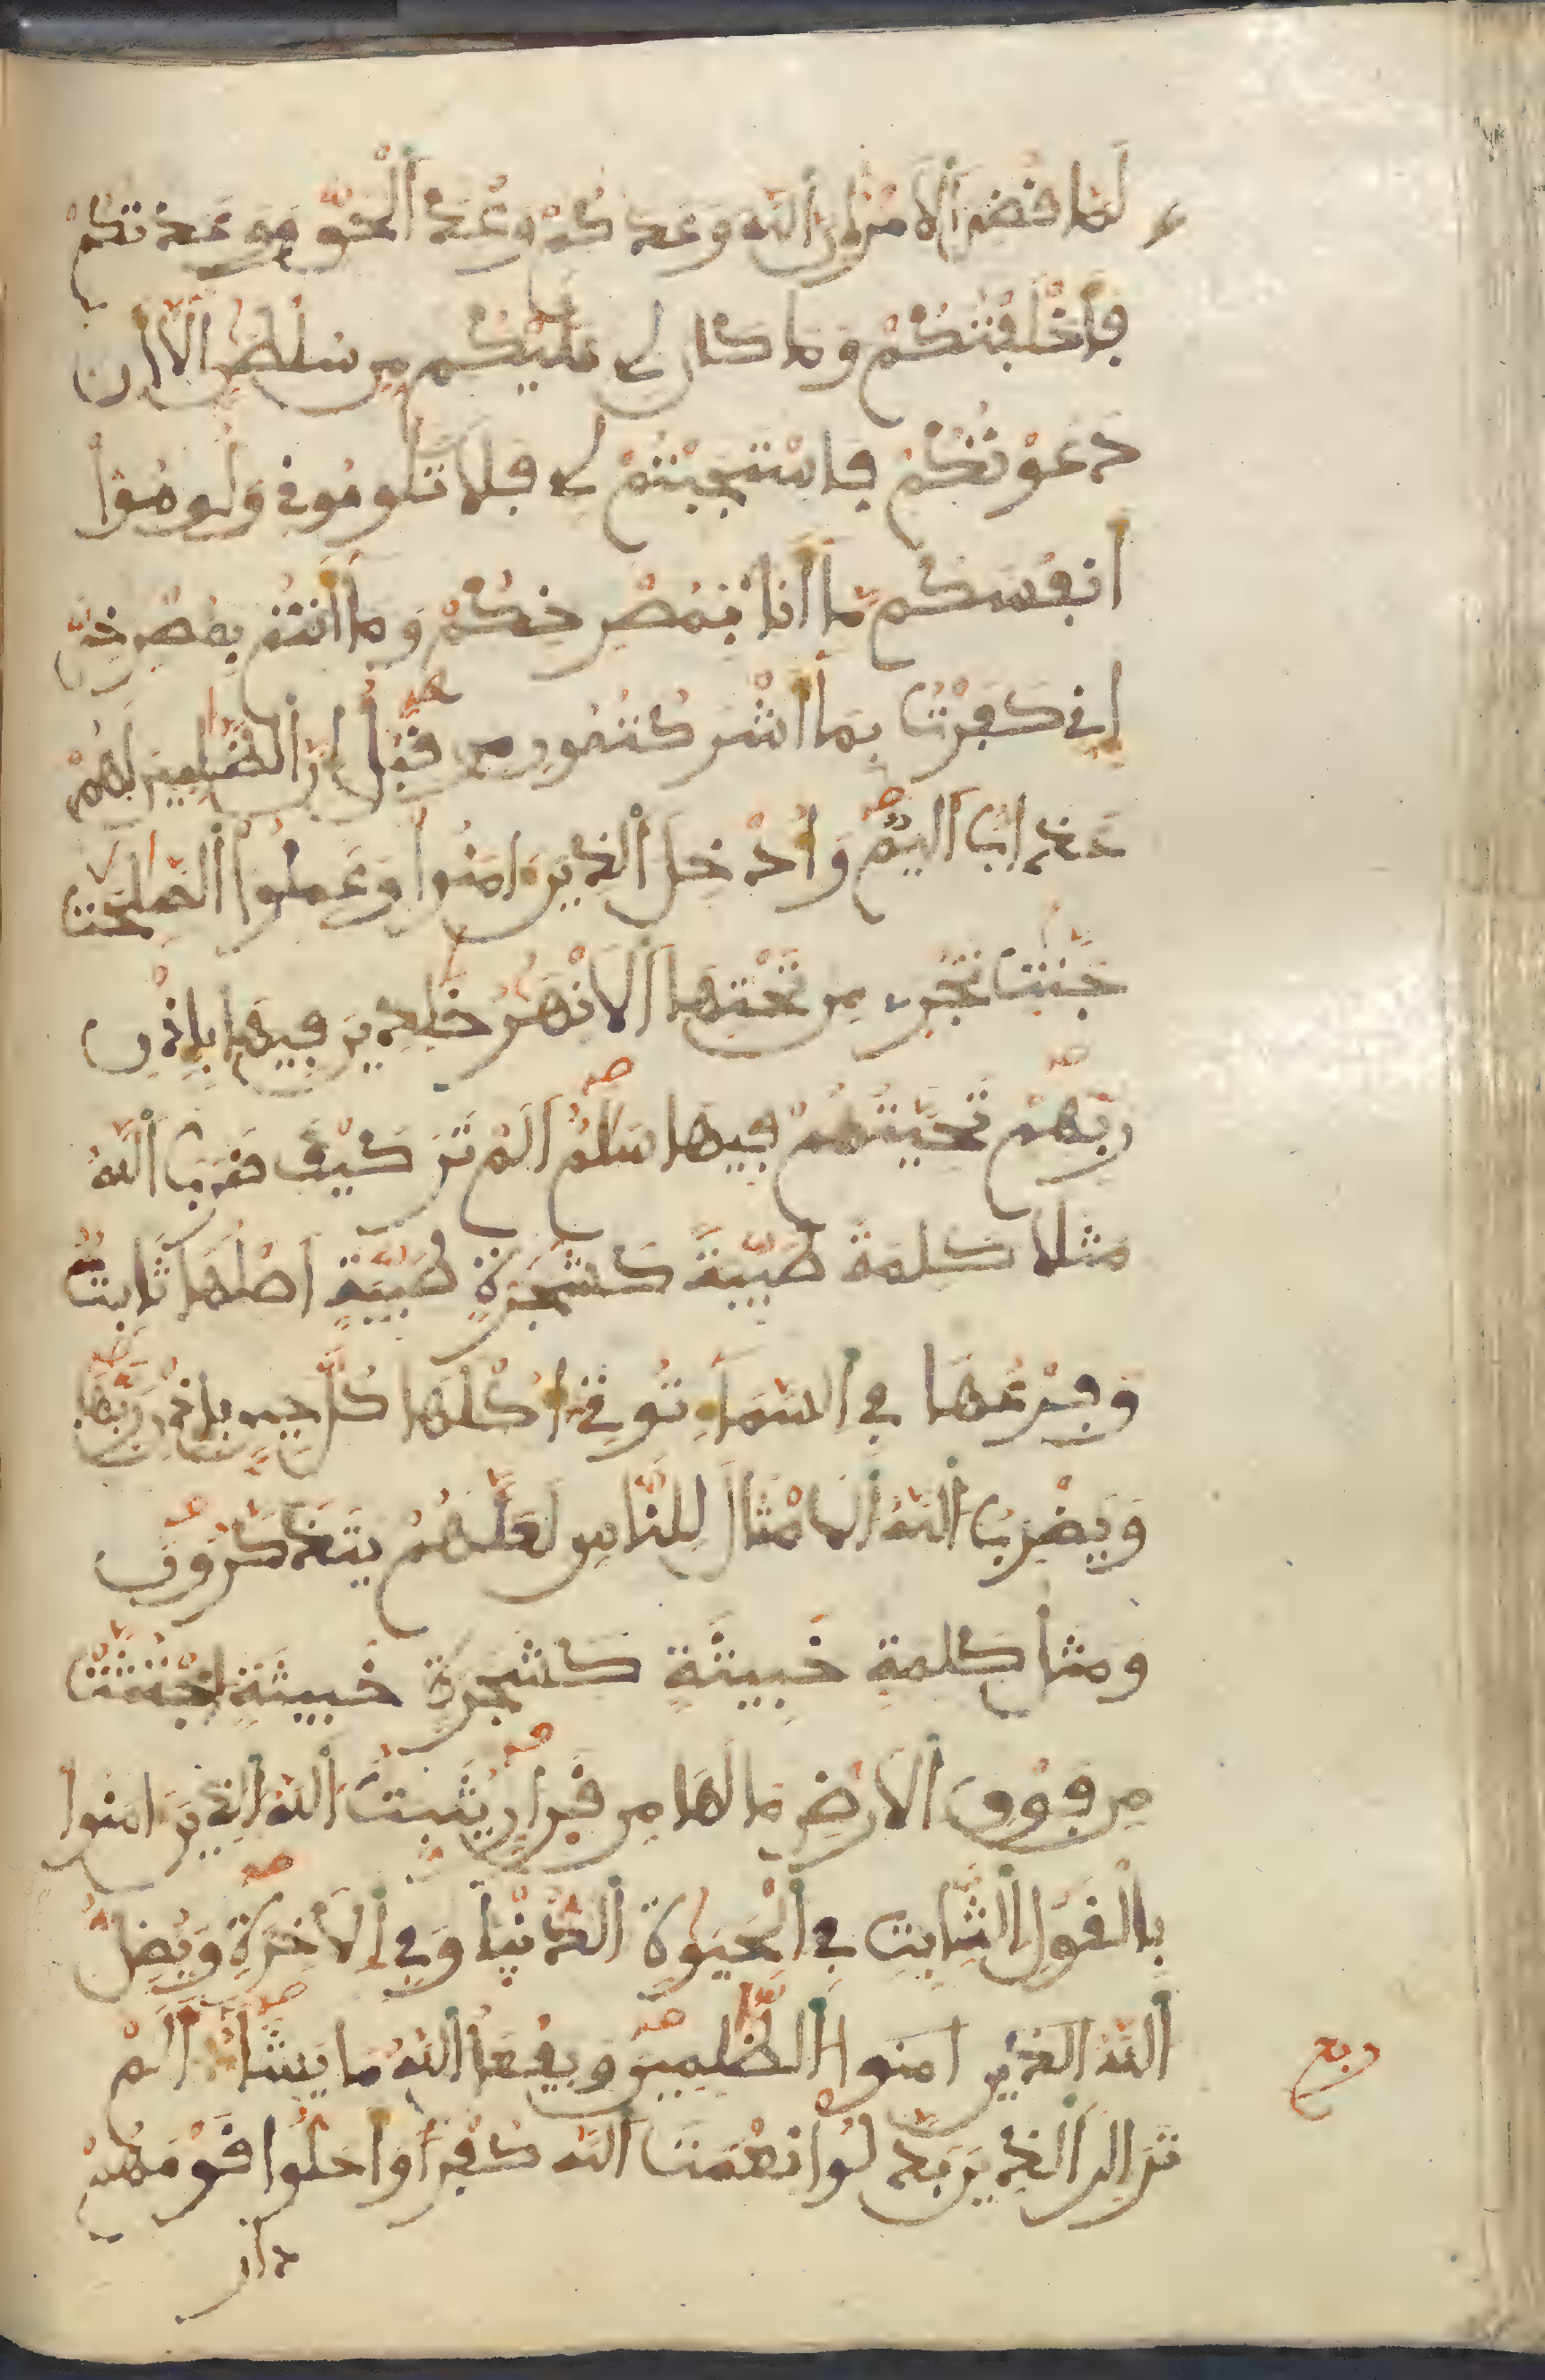 لَمَّا قُضِيَ ٱلَامْرُ إِنَّ ٱللَّهَ وَعَدَكُمْ وَعْدَ ٱلْحَقِّ وَوَعَدتُّكُمْ
فَأَخْلَفْتُكُمْ وَمَا كَانَ لِي عَلَيْكُم مِّن سُلْطَٰنٍ اِلَّآ أَن
دَعَوْتُكُمْ فَاسْتَجَبْتُمْ لِي فَلَا تَلُومُونِي وَلُومُوٓاْ
أَنفُسَكُم مَّآ أَنَا بِمُصْرِخِكُمْ وَمَآ أَنتُم بِمُصْرِخِيَّ
إِنِّي كَفَرْتُ بِمَآ أَشْرَكْتُمُونِ مِن قَبْلُ إِنَّ ٱلظَّٰلِمِينَ لَهُمْ
عَذَابٌ اَلِيمٌ وَأُدْخِلَ ٱلذِينَ ءَامَنُواْ وَعَمِلُواْ ٱلصَّٰلِحَٰتِ
جَنَّٰتٍ تَجْرِي مِن تَحْتِهَا ٱلَانْهَٰرُ خَٰلِدِينَ فِيهَا بِإِذْنِ
رَبِّهِمْ تَحِيَّتُهُمْ فِيهَا سَلَٰمٌ اَلَمْ تَرَ كَيْفَ ضَرَبَ ٱللَّهُ
مَثَلًا كَلِمَةً طَيِّبَةً كَشَجَرَةٍ طَيِّبَةٍ اَصْلُهَا ثَابِتٌ
وَفَرْعُهَا فِي ٱلسَّمَآءِ تُوتِيٓ أُكْلَهَا كُلَّ حِينٍ بِإِذْنِ رَبِّهَا
وَيَضْرِبُ ٱللَّهُ ٱلَامْثَالَ لِلنَّاسِ لَعَلَّهُمْ يَتَذَكَّرُونَ
وَمَثَلُ كَلِمَةٍ خَبِيثَةٍ كَشَجَرَةٍ خَبِيثَةٍ اجْتُثَّتْ
مِن فَوْقِ ٱلَارْضِ مَا لَهَا مِن قَرَارٍ يُثَبِّتُ ٱللَّهُ ٱلذِينَ ءَامَنُواْ
بِالْقَوْلِ ٱلثَّابِتِ فِي ٱلْحَيَوٰةِ ٱلدُّنْيَا وَفِي ٱلَاخِرَةِ وَيُضِلُّ
ٱللَّهُ الذين امنوا ٱلظَّٰلِمِينَ وَيَفْعَلُ ٱللَّهُ مَا يَشَآءُ أَلَمْ
ربع
تَرَ إِلَى ٱلذِينَ بَدَّلُواْ نِعْمَتَ ٱللَّهِ كُفْرًا وَأَحَلُّواْ قَوْمَهُمْ
دار